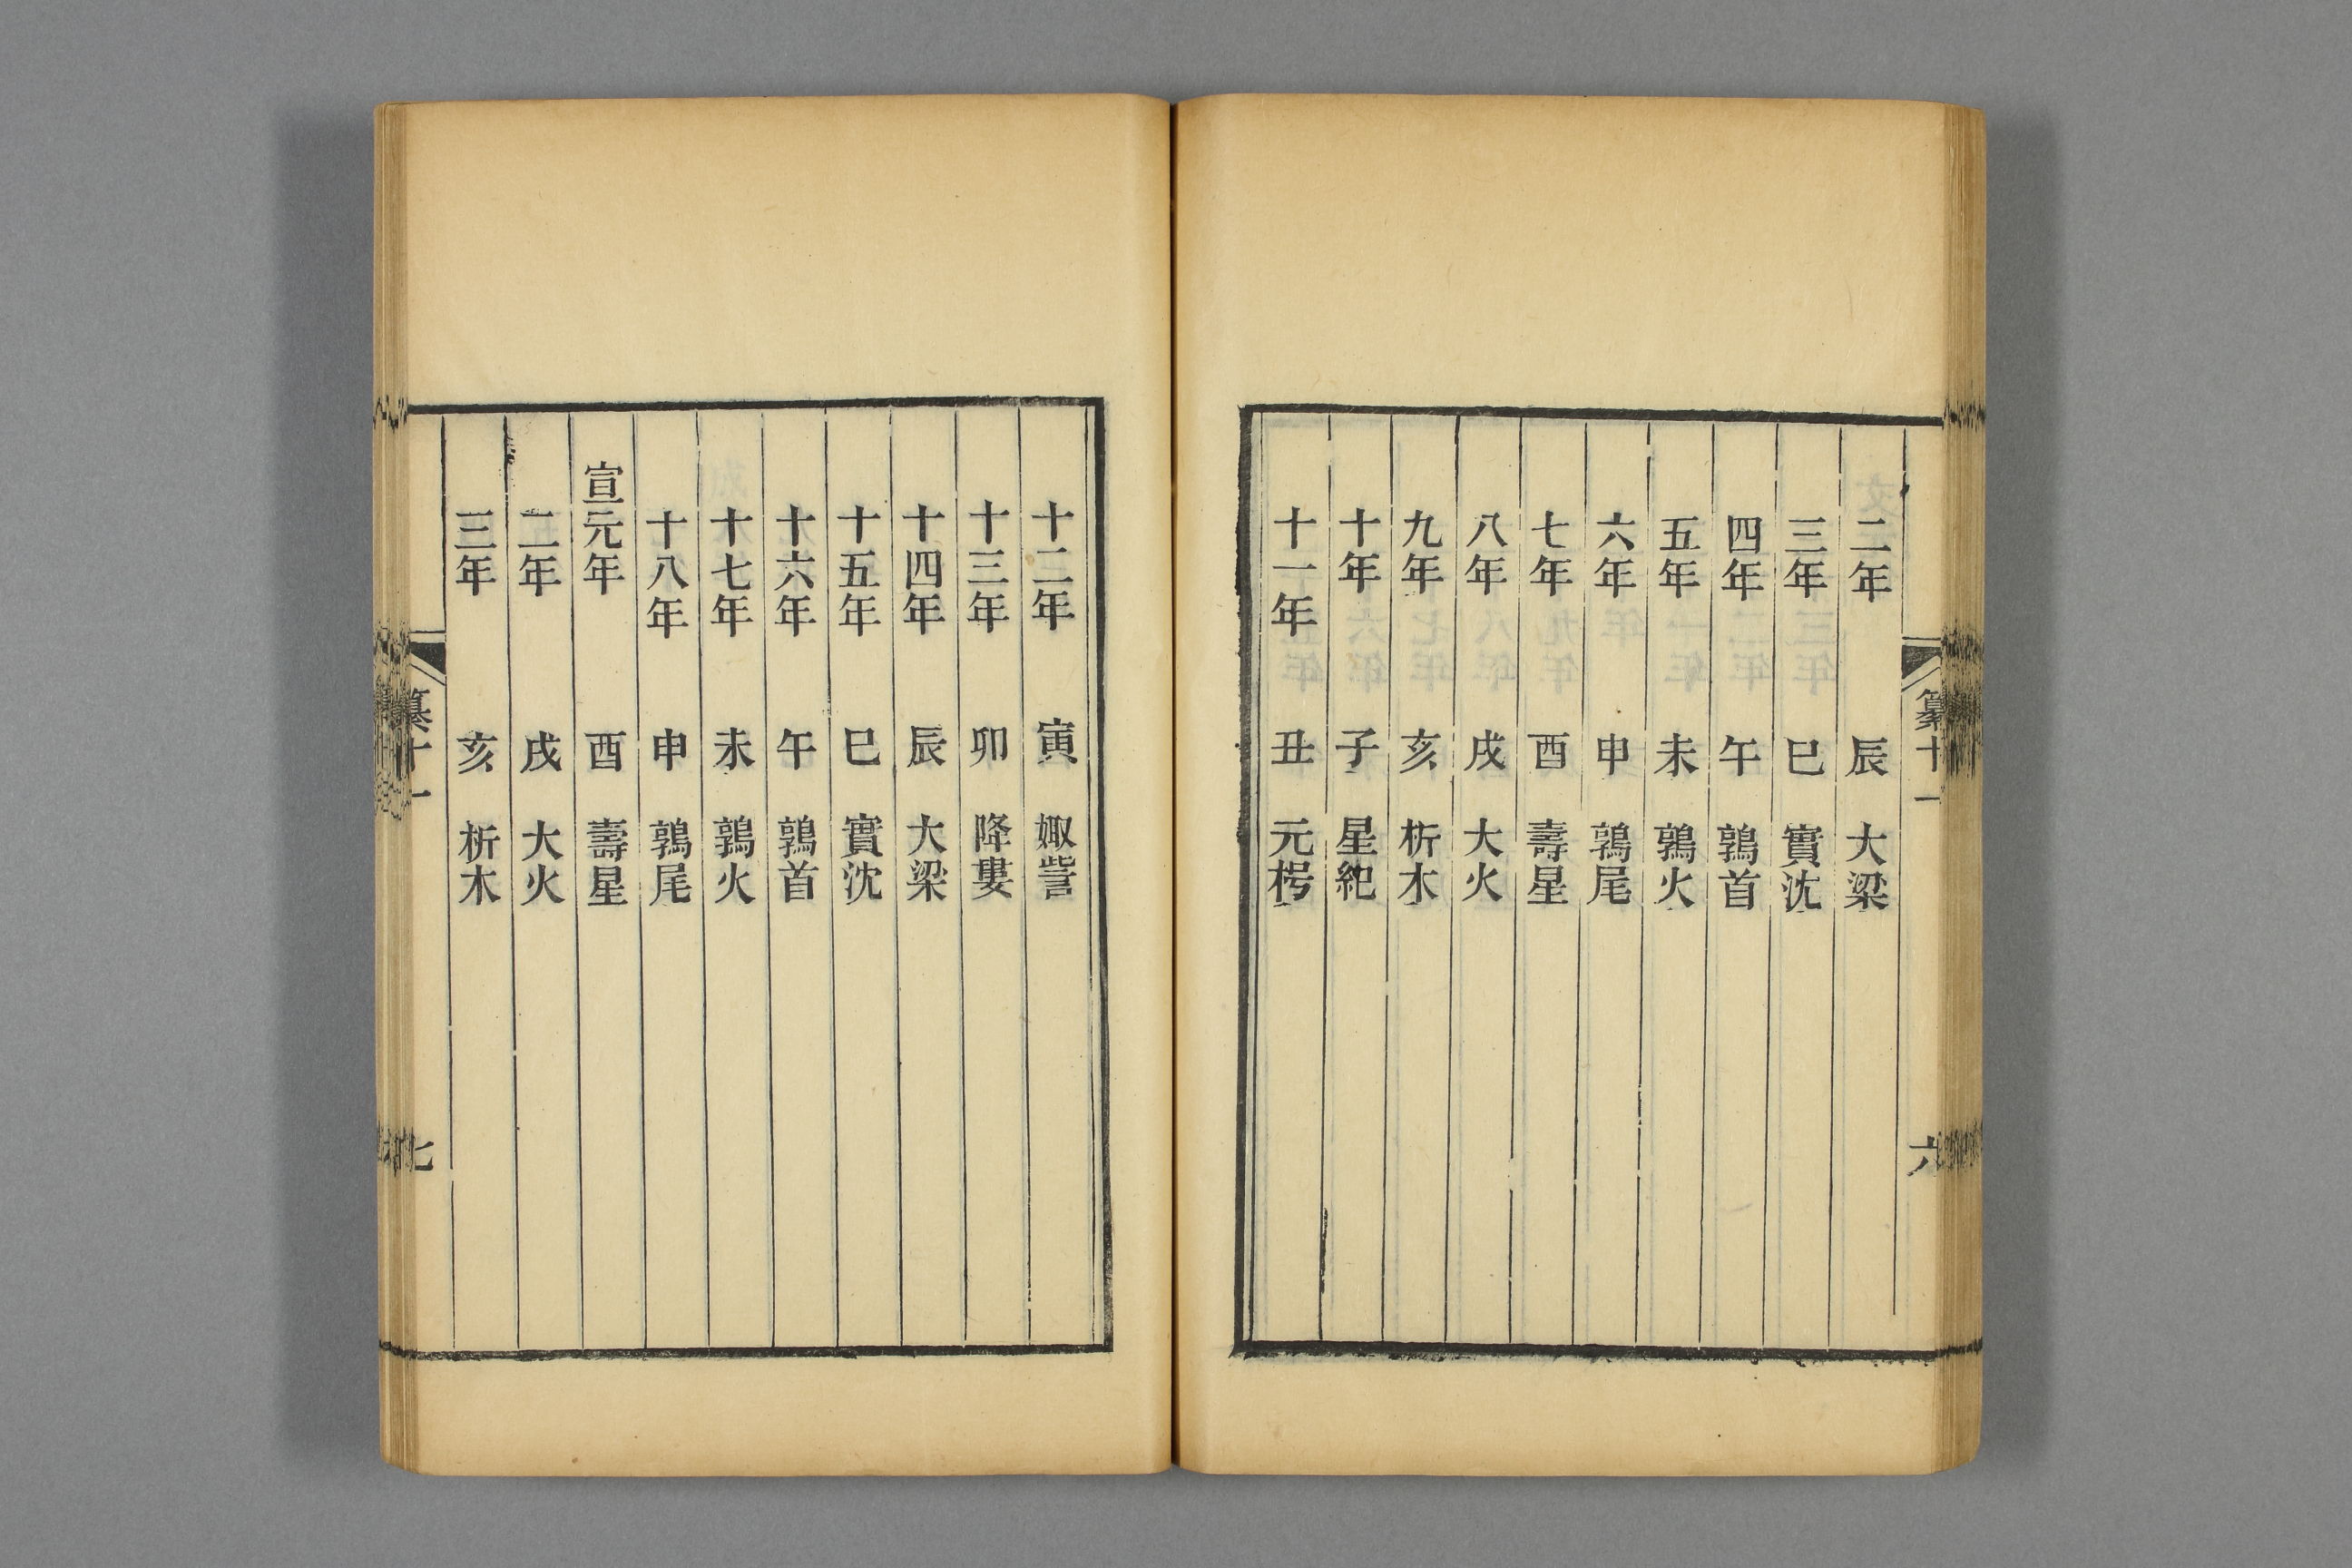 纂十一
六
二年 辰 大梁
三年 巳 實沈
四年 午 鶉首
五年 未 鶉火
六年 申 鶉尾
七年 酉 壽星
八年 戌 大火
九年 亥 析木
十年 子 星紀
十一年 丑 元枵
十二年 寅 娵訾
十三年 卯 降婁
十四年 辰 大梁
十五年 巳 實沈
十六年 午 鶉首
十七年 未 鶉火
十八年 申 鶉尾
宣元年 酉 壽星
二年 戌 大火
三年 亥 析木
纂十一
七